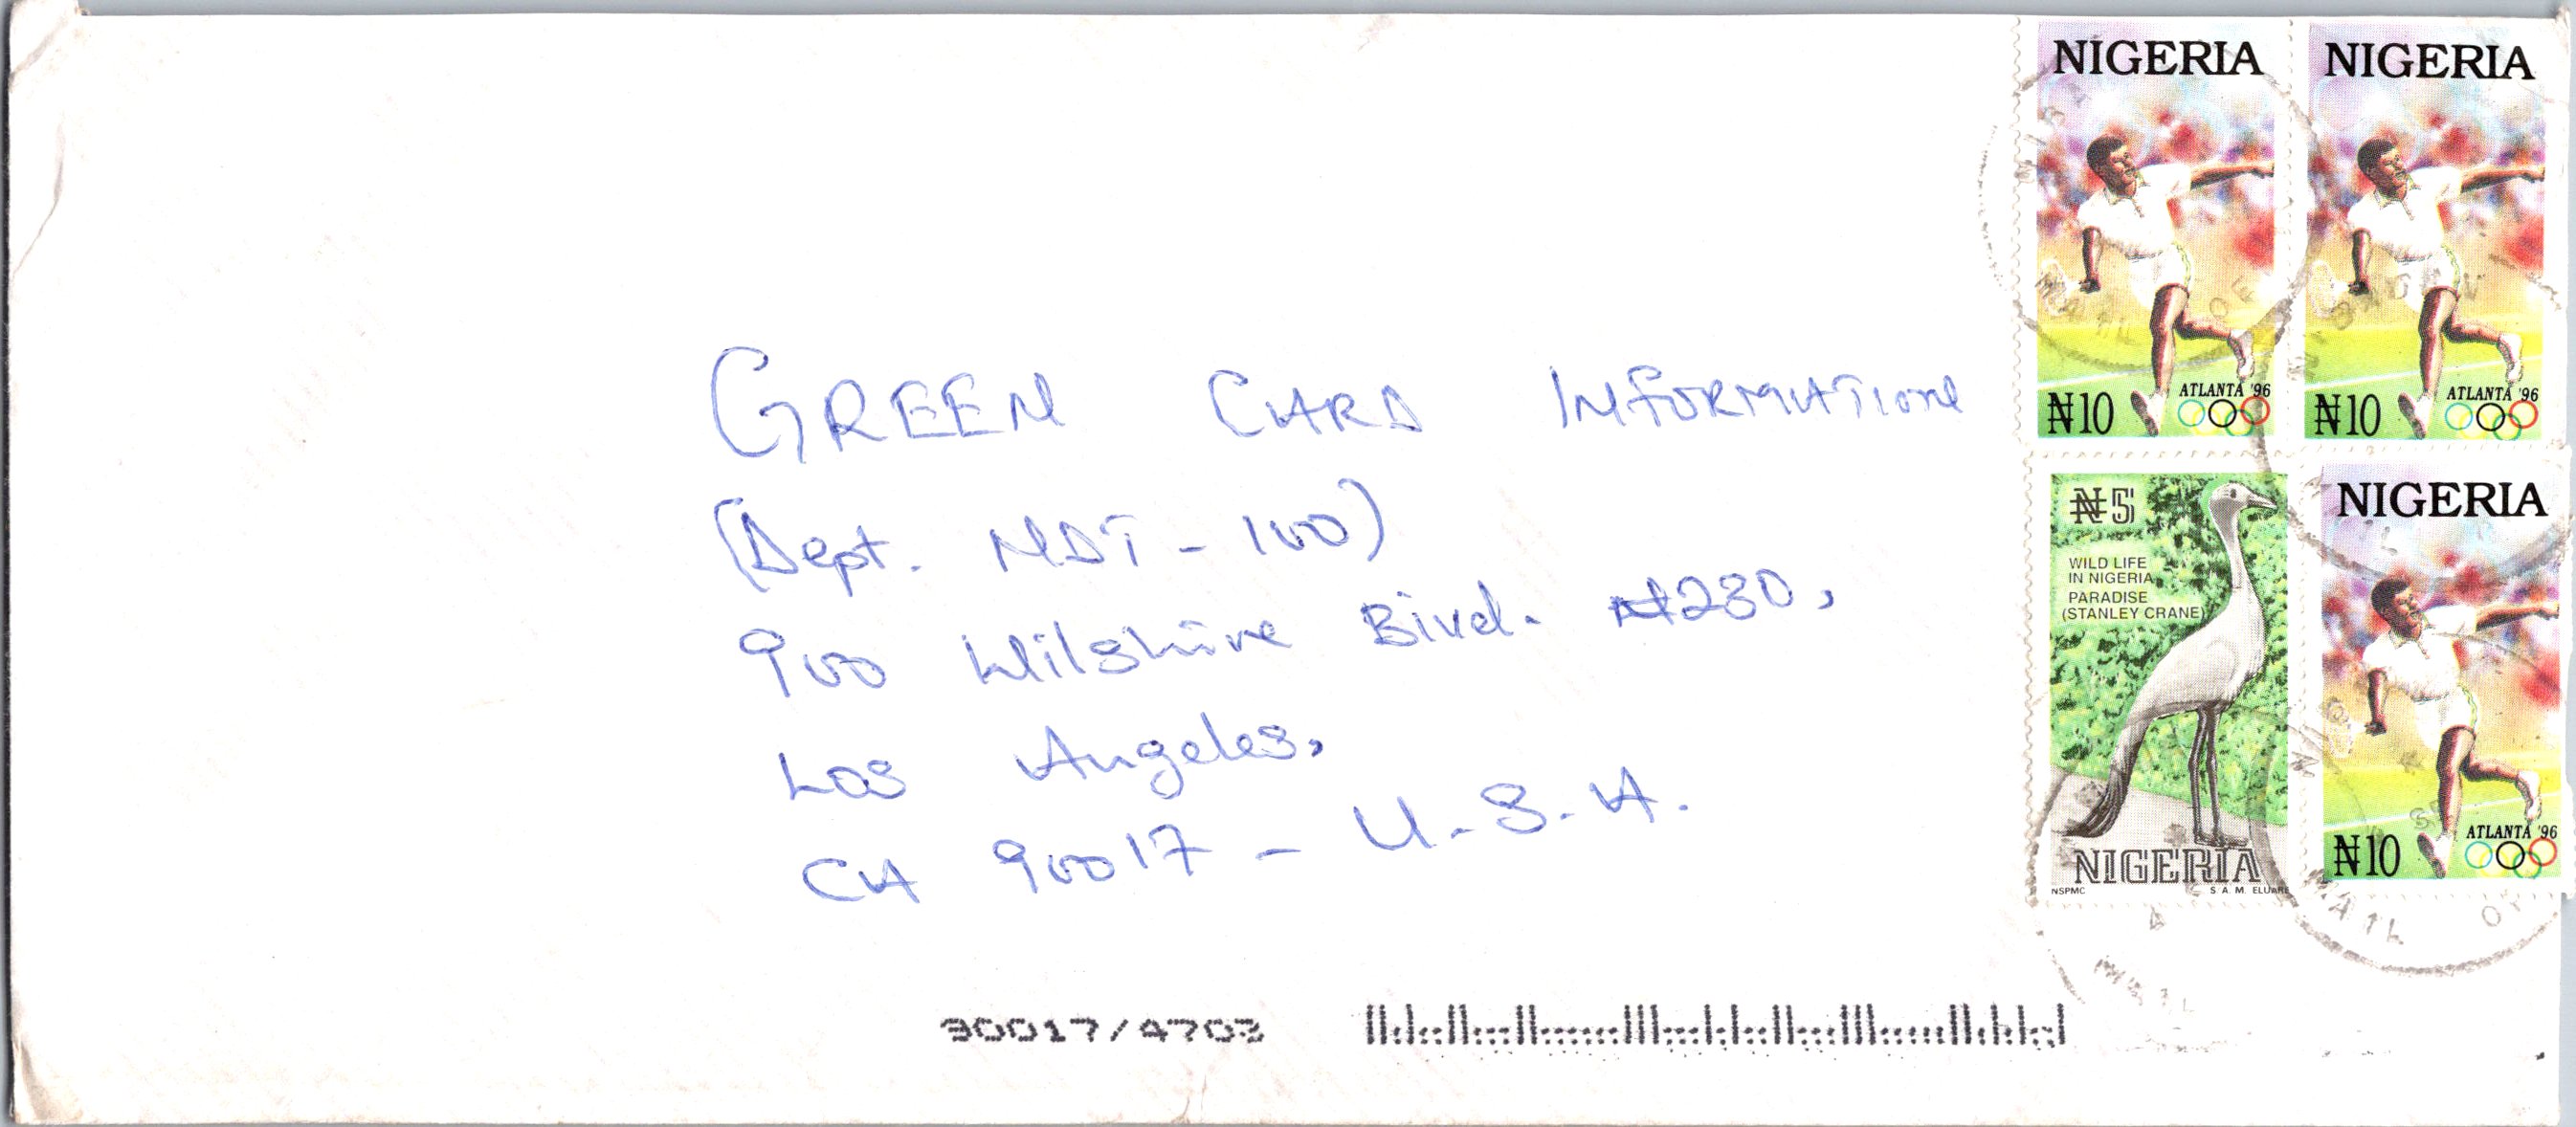 GREEN CARD INFORMATION
(Dept. NDT - 100)
900 Wilshire Bivd. #230,
Los Angeles,
CA 90017 - U.S.A.
90017/4703
NIGERIA
ATLANTA '96
₦10
NIGERIA
ATLANTA '96
₦10
₦5
WILD LIFE
IN NIGERIA
PARADISE
(STANLEY CRANE)
NIGERIA
NSPMC
S. A. M. ELUARE
NIGERIA
ATLANTA '96
₦10